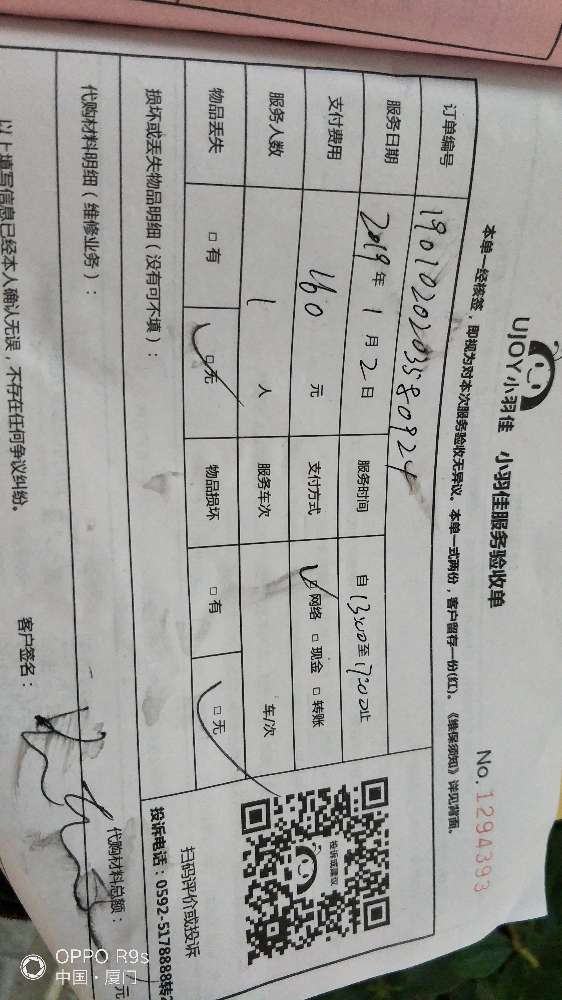 UJOY小羽佳 小羽佳服务验收单
No. 1294393
本单一经核签，即视为对本次服务验收无异议。本单一式两份，客户留存一份(红)。《维保须知》详见背面。
订单编号 1901020203580924
服务日期 2019年1月2日 服务时间 自13:00至17:00止
支付费用 160元 支付方式 ☑网络 □现金 □转账
服务人数 1人 服务车次 车/次
物品丢失 □有 ☑无 物品损坏 □有 ☑无
投诉或建议
扫码评价或投诉
投诉电话：0592-5178888转
损坏或丢失物品明细（没有可不填）：
代购材料明细（维修业务）：
代购材料总额： 元
以上填写信息已经本人确认无误，不存在任何争议纠纷。
客户签名：
OPPO R9s
中国·厦门